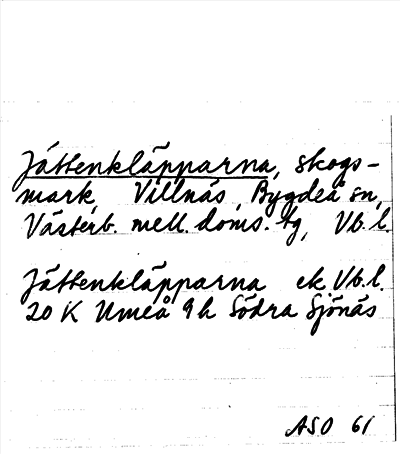 Jättenkläpparna, skogs-
mark, Villnäs, Bygdeå sn,
Västerb. mell. doms. tg, Vb. l.
Jättenkläpparna ek Vb. l.
20 K Umeå 9 h Södra Sjönäs
ASO 61